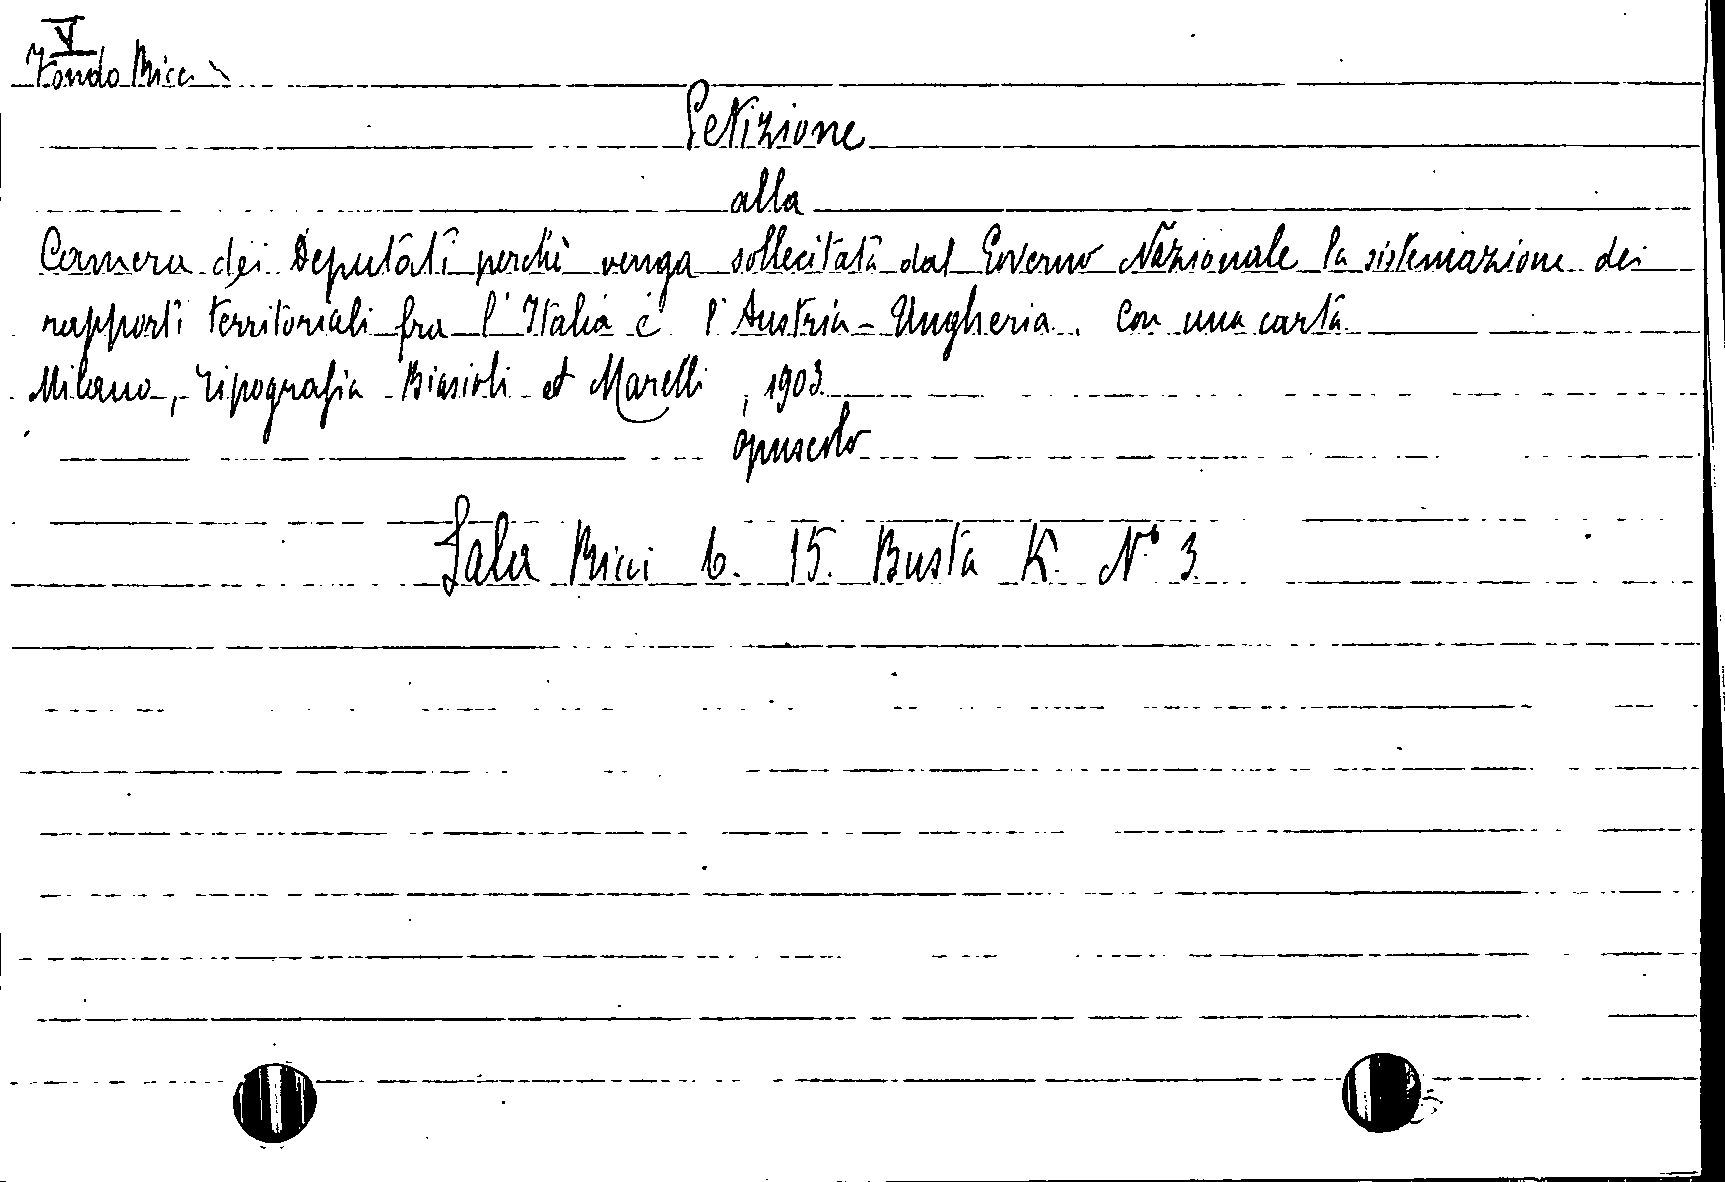 V
Fondo Ricci
Petizione
alla
Camera dei Deputati perchè venga sollecitata dal Governo Nazionale la sistemazione dei
rapporti territoriali fra l'Italia e l'Austria-Ungheria. Con una carta
Milano, Tipografia Biasioli et Marelli, 1903
opuscolo
Sala Ricci b. 15. Busta K. N° 3